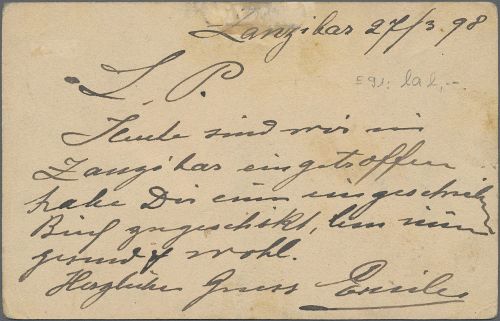 Zanzibar 27/3 98
L. P.
Heute sind wir in
Zanzibar eingetroffen
habe Dir einen eingeschrieb.
Brief zugeschikt, bin
gesund & wohl.
Herzlichen Gruss Emile